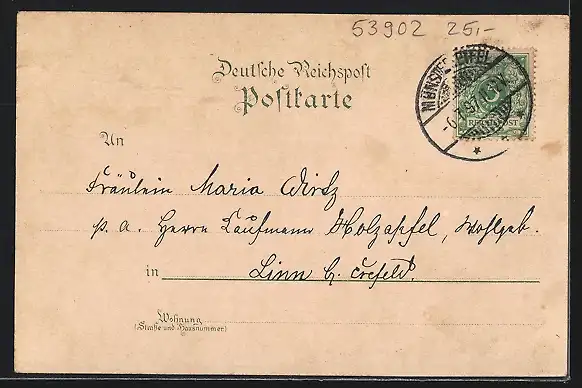 53902 25,-
Deutsche Reichspost
Postkarte
MÜNSTEREIFEL
REICHSPOST
An
Fräulein Maria Wirtz
p. a. Herrn Kaufmann Holzapfel, Wohlgeb.
in Linn b. Crefeld.
Wohnung
(Straße und Hausnummer)